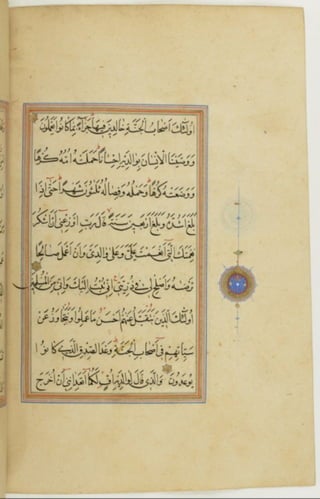 اُولٰٓئِكَ اَصْحَابُ الْجَنَّةِ خَالِدِينَ فِيهَا جَزَآءً بِمَا كَانُوا يَعْمَلُونَ
وَوَصَّيْنَا الْاِنْسَانَ بِوَالِدَيْهِ اِحْسَانًا حَمَلَتْهُ اُمُّهُ كُرْهًا
وَوَضَعَتْهُ كُرْهًا وَحَمْلُهُ وَفِصَالُهُ ثَلٰثُونَ شَهْرًا حَتّٰى اِذَا
بَلَغَ اَشُدَّهُ وَبَلَغَ اَرْبَعِينَ سَنَةً قَالَ رَبِّ اَوْزِعْنِى اَنْ اَشْكُرَ
نِعْمَتَكَ الَّتِى اَنْعَمْتَ عَلَىَّ وَعَلٰى وَالِدَىَّ وَاَنْ اَعْمَلَ صَالِحًا
تَرْضٰيهُ وَاَصْلِحْ لِى فِى ذُرِّيَّتِى اِنِّى تُبْتُ اِلَيْكَ وَاِنِّى مِنَ الْمُسْلِمِينَ
اُولٰٓئِكَ الَّذِينَ نَتَقَبَّلُ عَنْهُمْ اَحْسَنَ مَا عَمِلُوا وَنَتَجَاوَزُ عَنْ
سَيِّئَاتِهِمْ فِى اَصْحَابِ الْجَنَّةِ وَعْدَ الصِّدْقِ الَّذِى كَانُوا
يُوعَدُونَ وَالَّذِى قَالَ لِوَالِدَيْهِ اُفٍّ لَكُمَا اَتَعِدَانِنِى اَنْ اُخْرَجَ